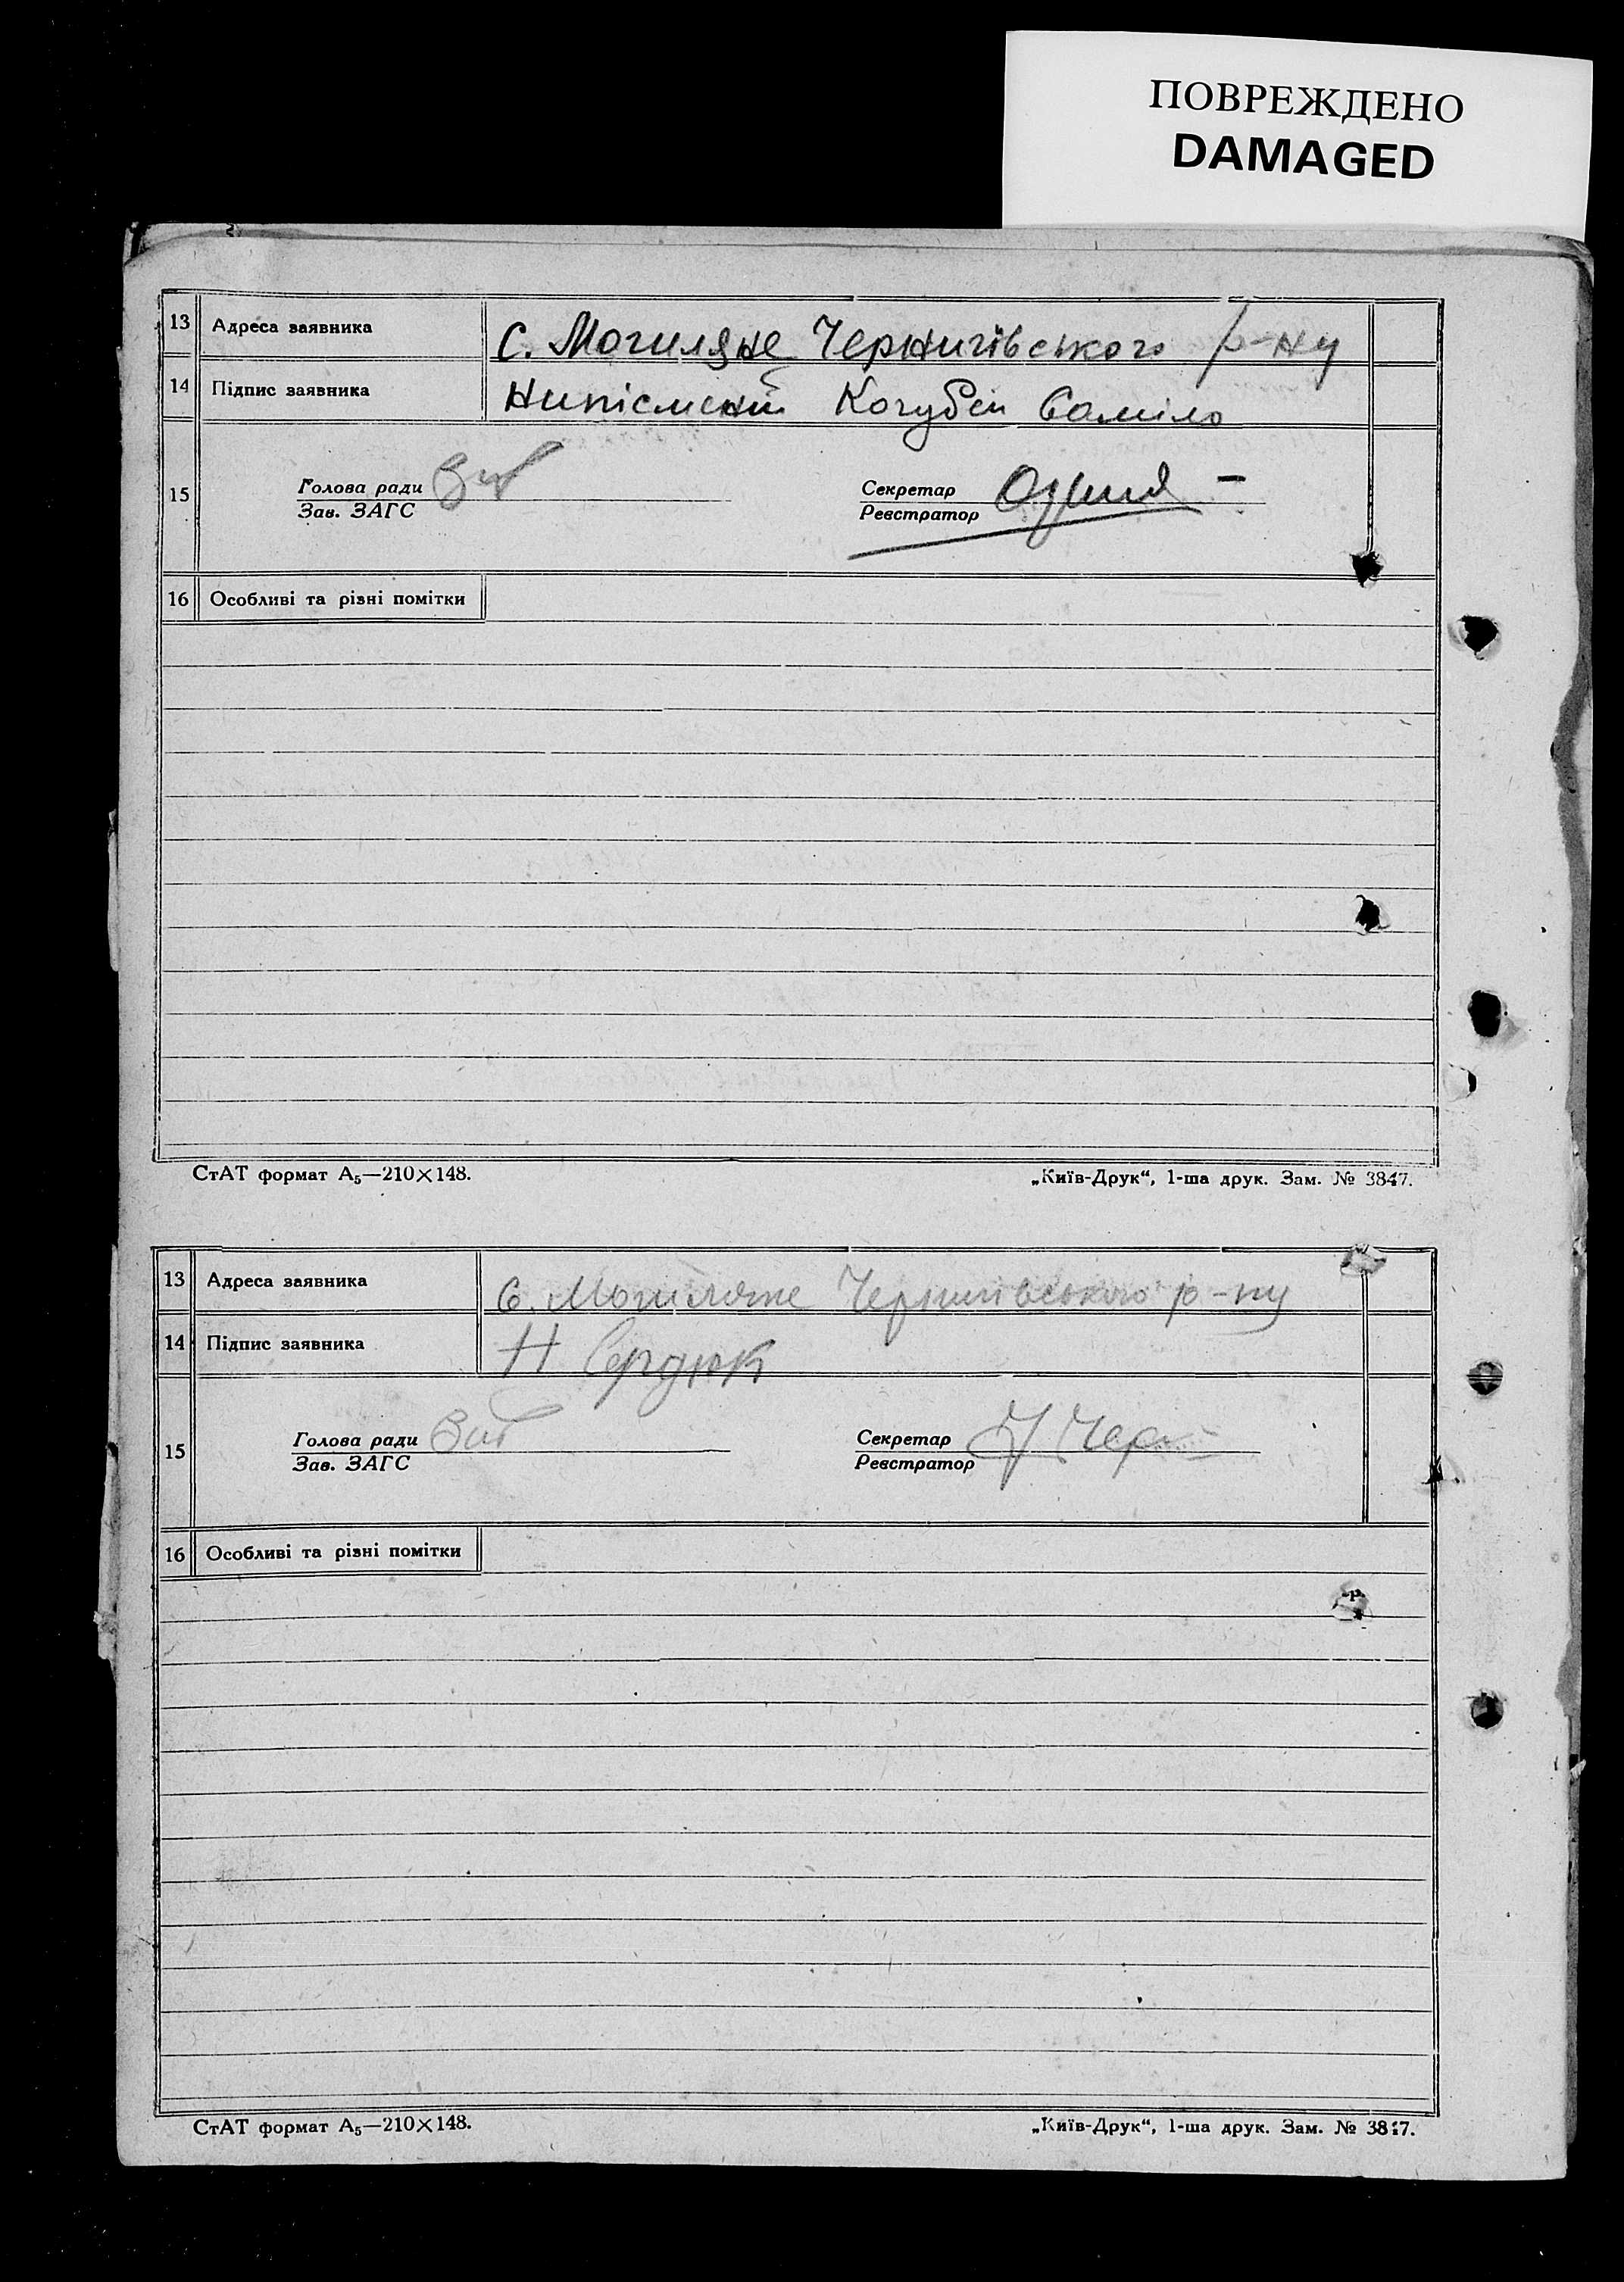 ПОВРЕЖДЕНО
DAMAGED
13 Адреса заявника С. Могиляне Чернигівського р-ну
14 Підпис заявника Нипісмений Кочубей Саміло
15 Голова ради Секретар
Зав. ЗАГС Реєстратор
16 Особливі та різні помітки
СтАТ формат А5—210×148. „Київ-Друк“, 1-ша друк. Зам. № 3847.
13 Адреса заявника С. Могиляне Чернигівського р-ну
14 Підпис заявника Н Сердюк
15 Голова ради Секретар
Зав. ЗАГС Реєстратор
16 Особливі та різні помітки
СтАТ формат А5—210×148. „Київ-Друк“, 1-ша друк. Зам. № 3847.